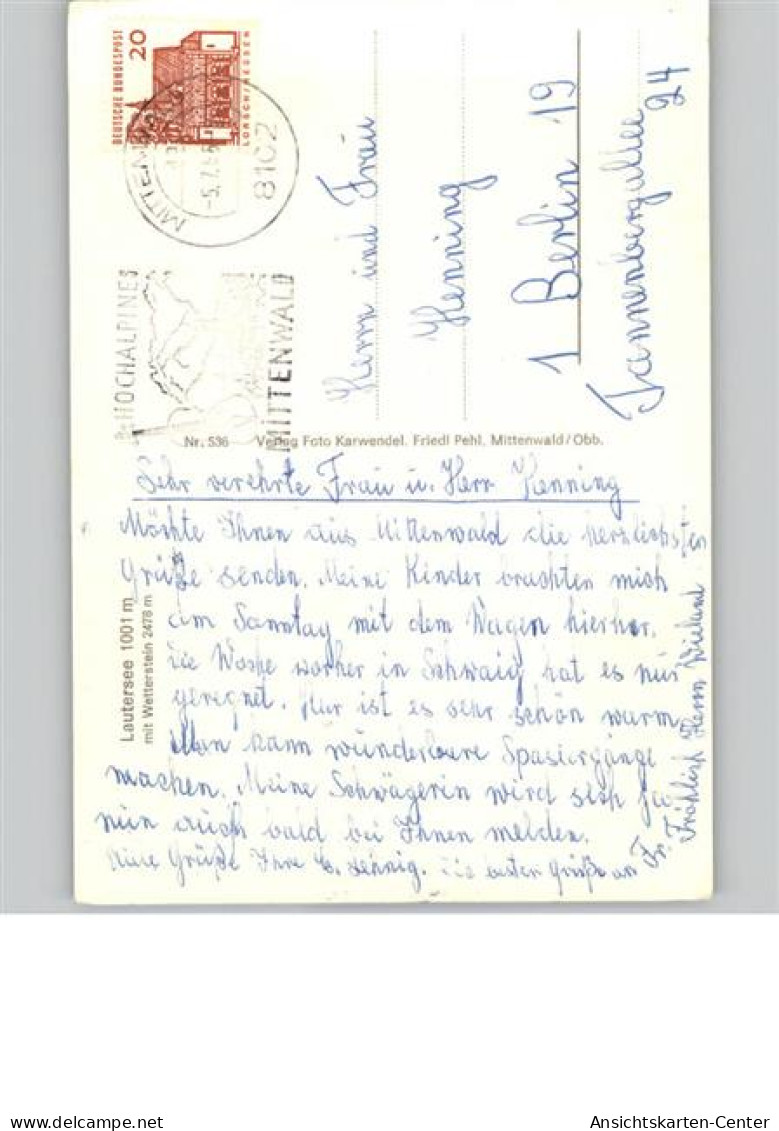 DEUTSCHE BUNDESPOST
20
LORSCH/HESSEN
MITTENWALD
-5.7.
8102
HOCHALPINES
MITTENWALD
Herrn und Frau
Henning
1 Berlin 19
Tannenbergallee
24
Nr. 536 Verlag Foto Karwendel. Friedl Pehl, Mittenwald/Obb.
Lautersee 1001 m
mit Wetterstein 2478 m
Sehr verehrte Frau u. Herr Henning
Möchte Ihnen aus Mittenwald die herzlichsten
Grüße senden. Meine Kinder brachten mich
am Sonntag mit dem Wagen hierher.
Die Woche vorher in Schwaig hat es nur
geregnet. Nur ist es sehr schön warm.
Man kann wunderbare Spaziergänge
machen. Meine Schwägerin wird sich ja
nun auch bald bei Ihnen melden.
Grüße Ihre Die besten Grüße an
Fr. Fröhlich Herrn
www.delcampe.net
Ansichtskarten-Center